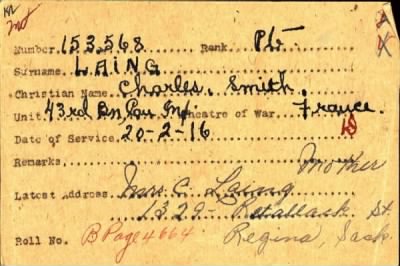 Number 153,568 Rank Pte
Surname LAING
Christian Name Charles Smith.
Unit 43rd Bn Can Inf. Theatre of War France.
Date of Service 20-2-16
Remarks
Mother
Latest Address Mrs C. Laing
1329 - Retallack St.
Roll No. B Page 4664 Regina, Sask.